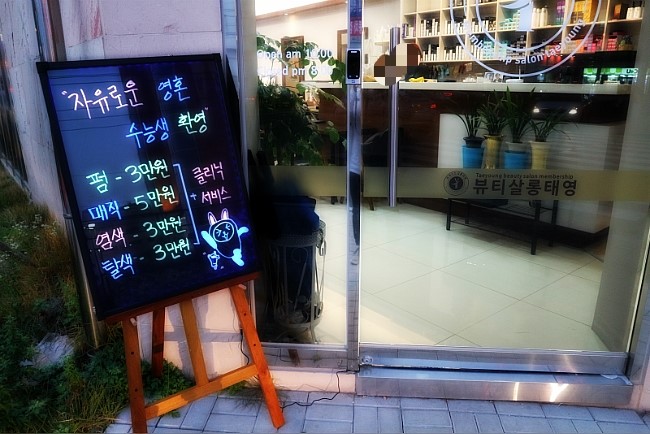 "자유로운 영혼
수능생 환영"
펌 - 3만원
매직 - 5만원
염색 - 3만원
탈색 - 3만원
클리닉
+ 서비스
Taeyoung beauty salon membership
뷰티살롱태영